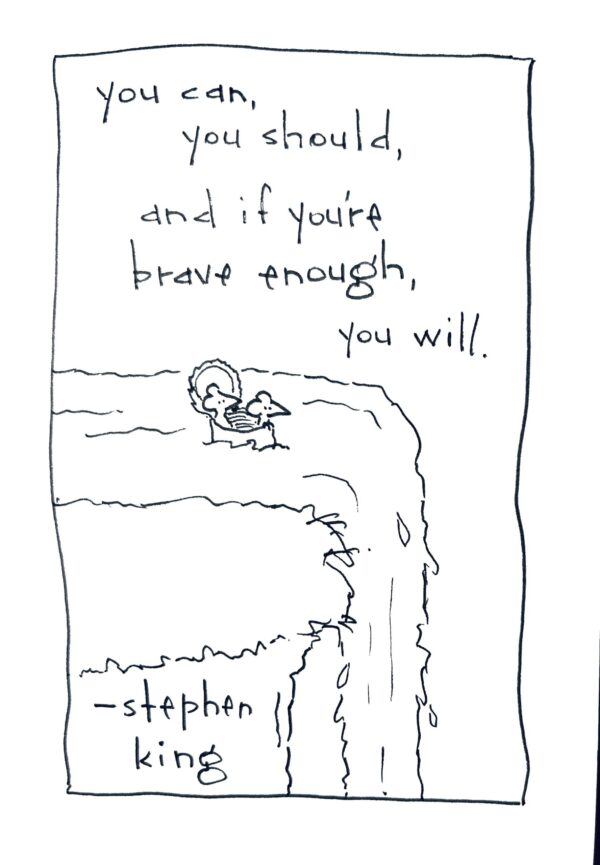 you can,
you should,
and if you're
brave enough,
you will.
-stephen
king